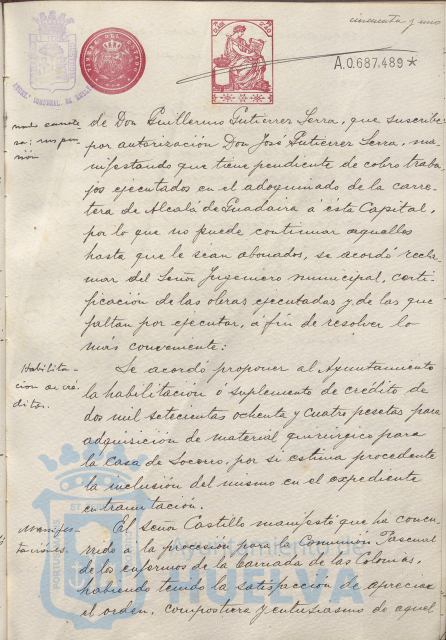 cincuenta y uno
TIMBRE DEL ESTADO
A.0.687.489*
de Don Guillermo Gutierrez Serra, que suscribe
por autorización Don José Gutierrez Serra, ma-
nifestando que tiene pendiente de cobro traba-
jos ejecutados en el adoquinado de la carre-
tera de Alcalá de Guadaira á ésta Capital,
por lo que no puede continuar aquellos
hasta que le sean abonados, se acordó recla-
mar del Señor Ingeniero municipal, certi-
ficación de las obras ejecutadas y de las que
faltan por ejecutar, á fin de resolver lo
más conveniente:
Habilita-
ción de cré-
ditos.
Se acordó proponer al Ayuntamiento
la habilitación ó suplemento de crédito de
dos mil setecientas ochenta y cuatro pesetas para
adquisición de material quirúrgico para
la Casa de Socorro, por si estima procedente
la inclusión del mismo en el expediente
en tramitación:
Manifes-
taciones.
El Señor Castillo manifestó que ha concu-
rrido á la procesión para la Comunión Pascual
de los enfermos de la Barriada de las Colonias,
habiendo tenido la satisfacción de apreciar
el orden, compostura y entusiasmo de aquel
Ayuntamiento de
HUELVA